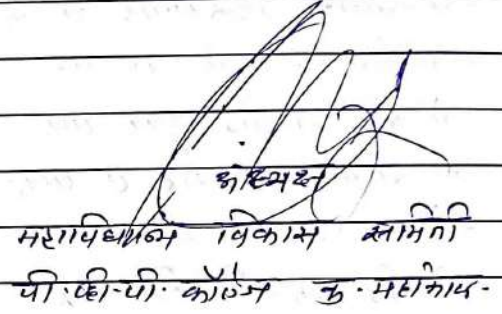 अध्यक्ष
महाविद्यालय विकास समिती
पी. व्ही. पी. कॉलेज क. महांकाळ.